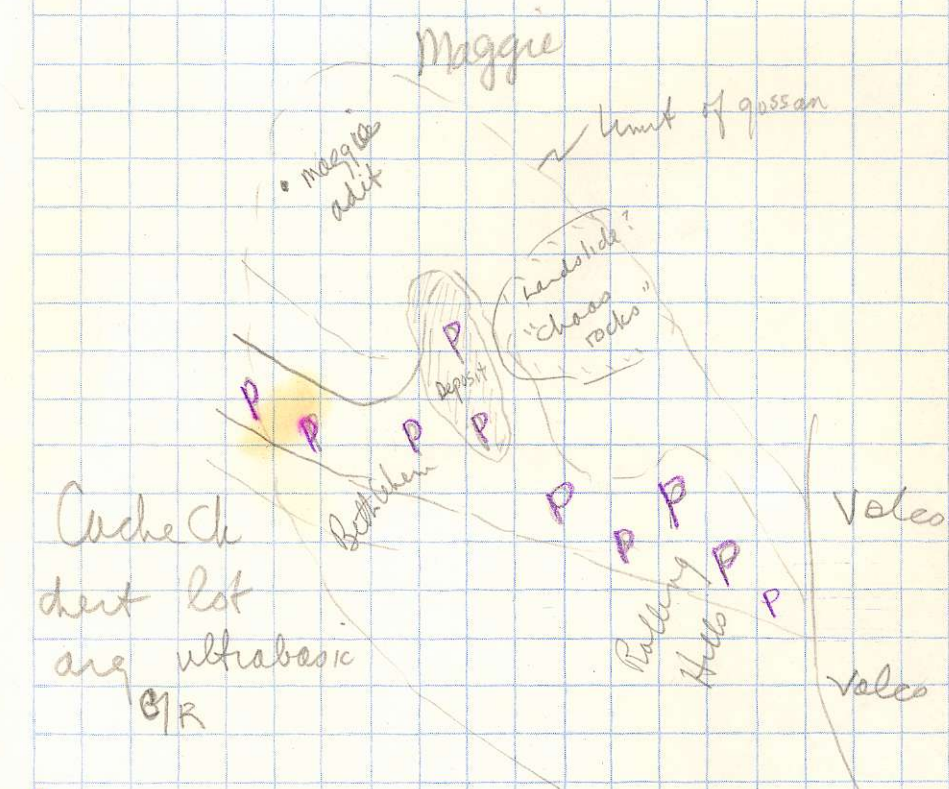 Maggie
limit of gossan
maggie
adit
Landslide?
"chaos
rocks"
P
Deposit
P
P
P
P
Bethlehem
P
P
P
P
P
Rolling
Hills
Volcs
Volcs
Cache Ck
chert lst
arg ultrabasic
O/R